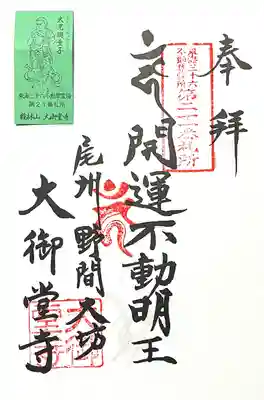 奉拝
東海三十六
不動尊霊場
第二十一番札所
開運不動明王
尾州野間大坊
大御堂寺
東海三十六不動尊霊場
第21番札所
鶴林山 大御堂寺